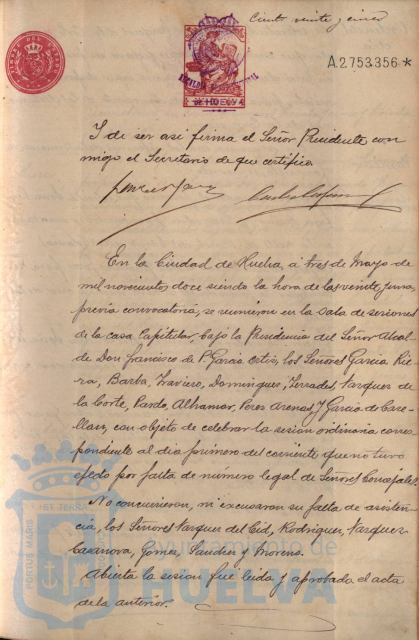 Ciento veinte y cinco
A.2753356*
Y de ser así firma el Señor Presidente con
migo el Secretario de que certifico.
En la Ciudad de Huelva, á tres de Mayo de
mil novecientos doce siendo la hora de las veinte y una,
previa convocatoria, se reunieron en la Sala de sesiones
de la casa Capitular, bajo la Presidencia del Señor Alcal
de Don Francisco de P. García Ortiz, los Señores García Rie
ra, Barba, Travieso, Domínguez, Terrades, Vazquez de
la Corte, Pardo, Alhamar, Perez Arenas, y García de Cas
llar, con objeto de celebrar la sesion ordinaria corres
pondiente al dia primero del corriente que no tuvo
efecto por falta de número legal de Señores Concejales.
No concurrieron, ni excusaron su falta de asisten
cia, los Señores Vazquez del Cid, Rodriguez, Vazquez
Casanova, Gomez, Sanchez y Moreno.
Abierta la sesion fue leida y aprobada el acta
de la anterior.
PORTUS MARIS
ET TERRÆ
Ayuntamiento de
HUELVA